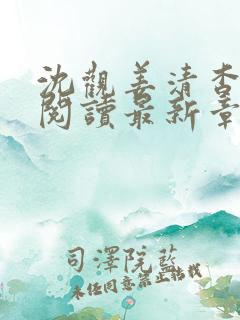 沈觀姜清杳
閱讀最新章
司澤院藍
未经同意禁止搭我